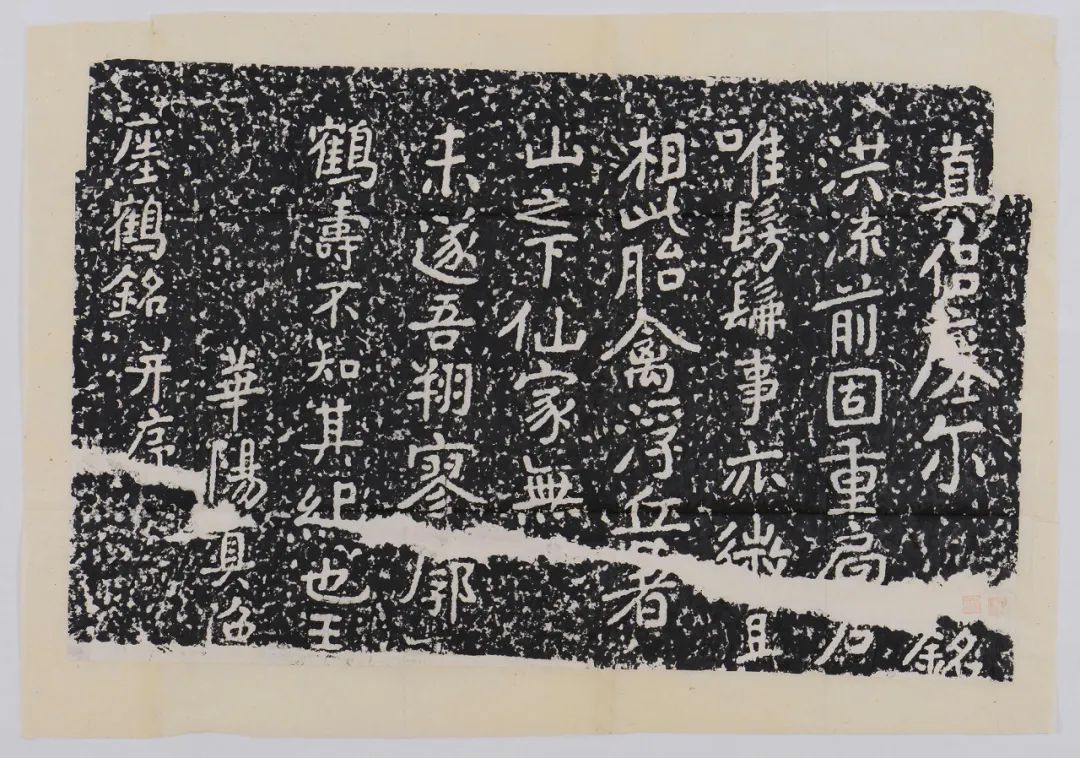 瘞鶴銘并序
華陽真
鶴壽不知其紀也壬
未遂吾翔寥廓
山之下仙家無
相此胎禽浮丘著
唯髣髴事亦微且
洪流前固重扃
真侶瘞尔銘